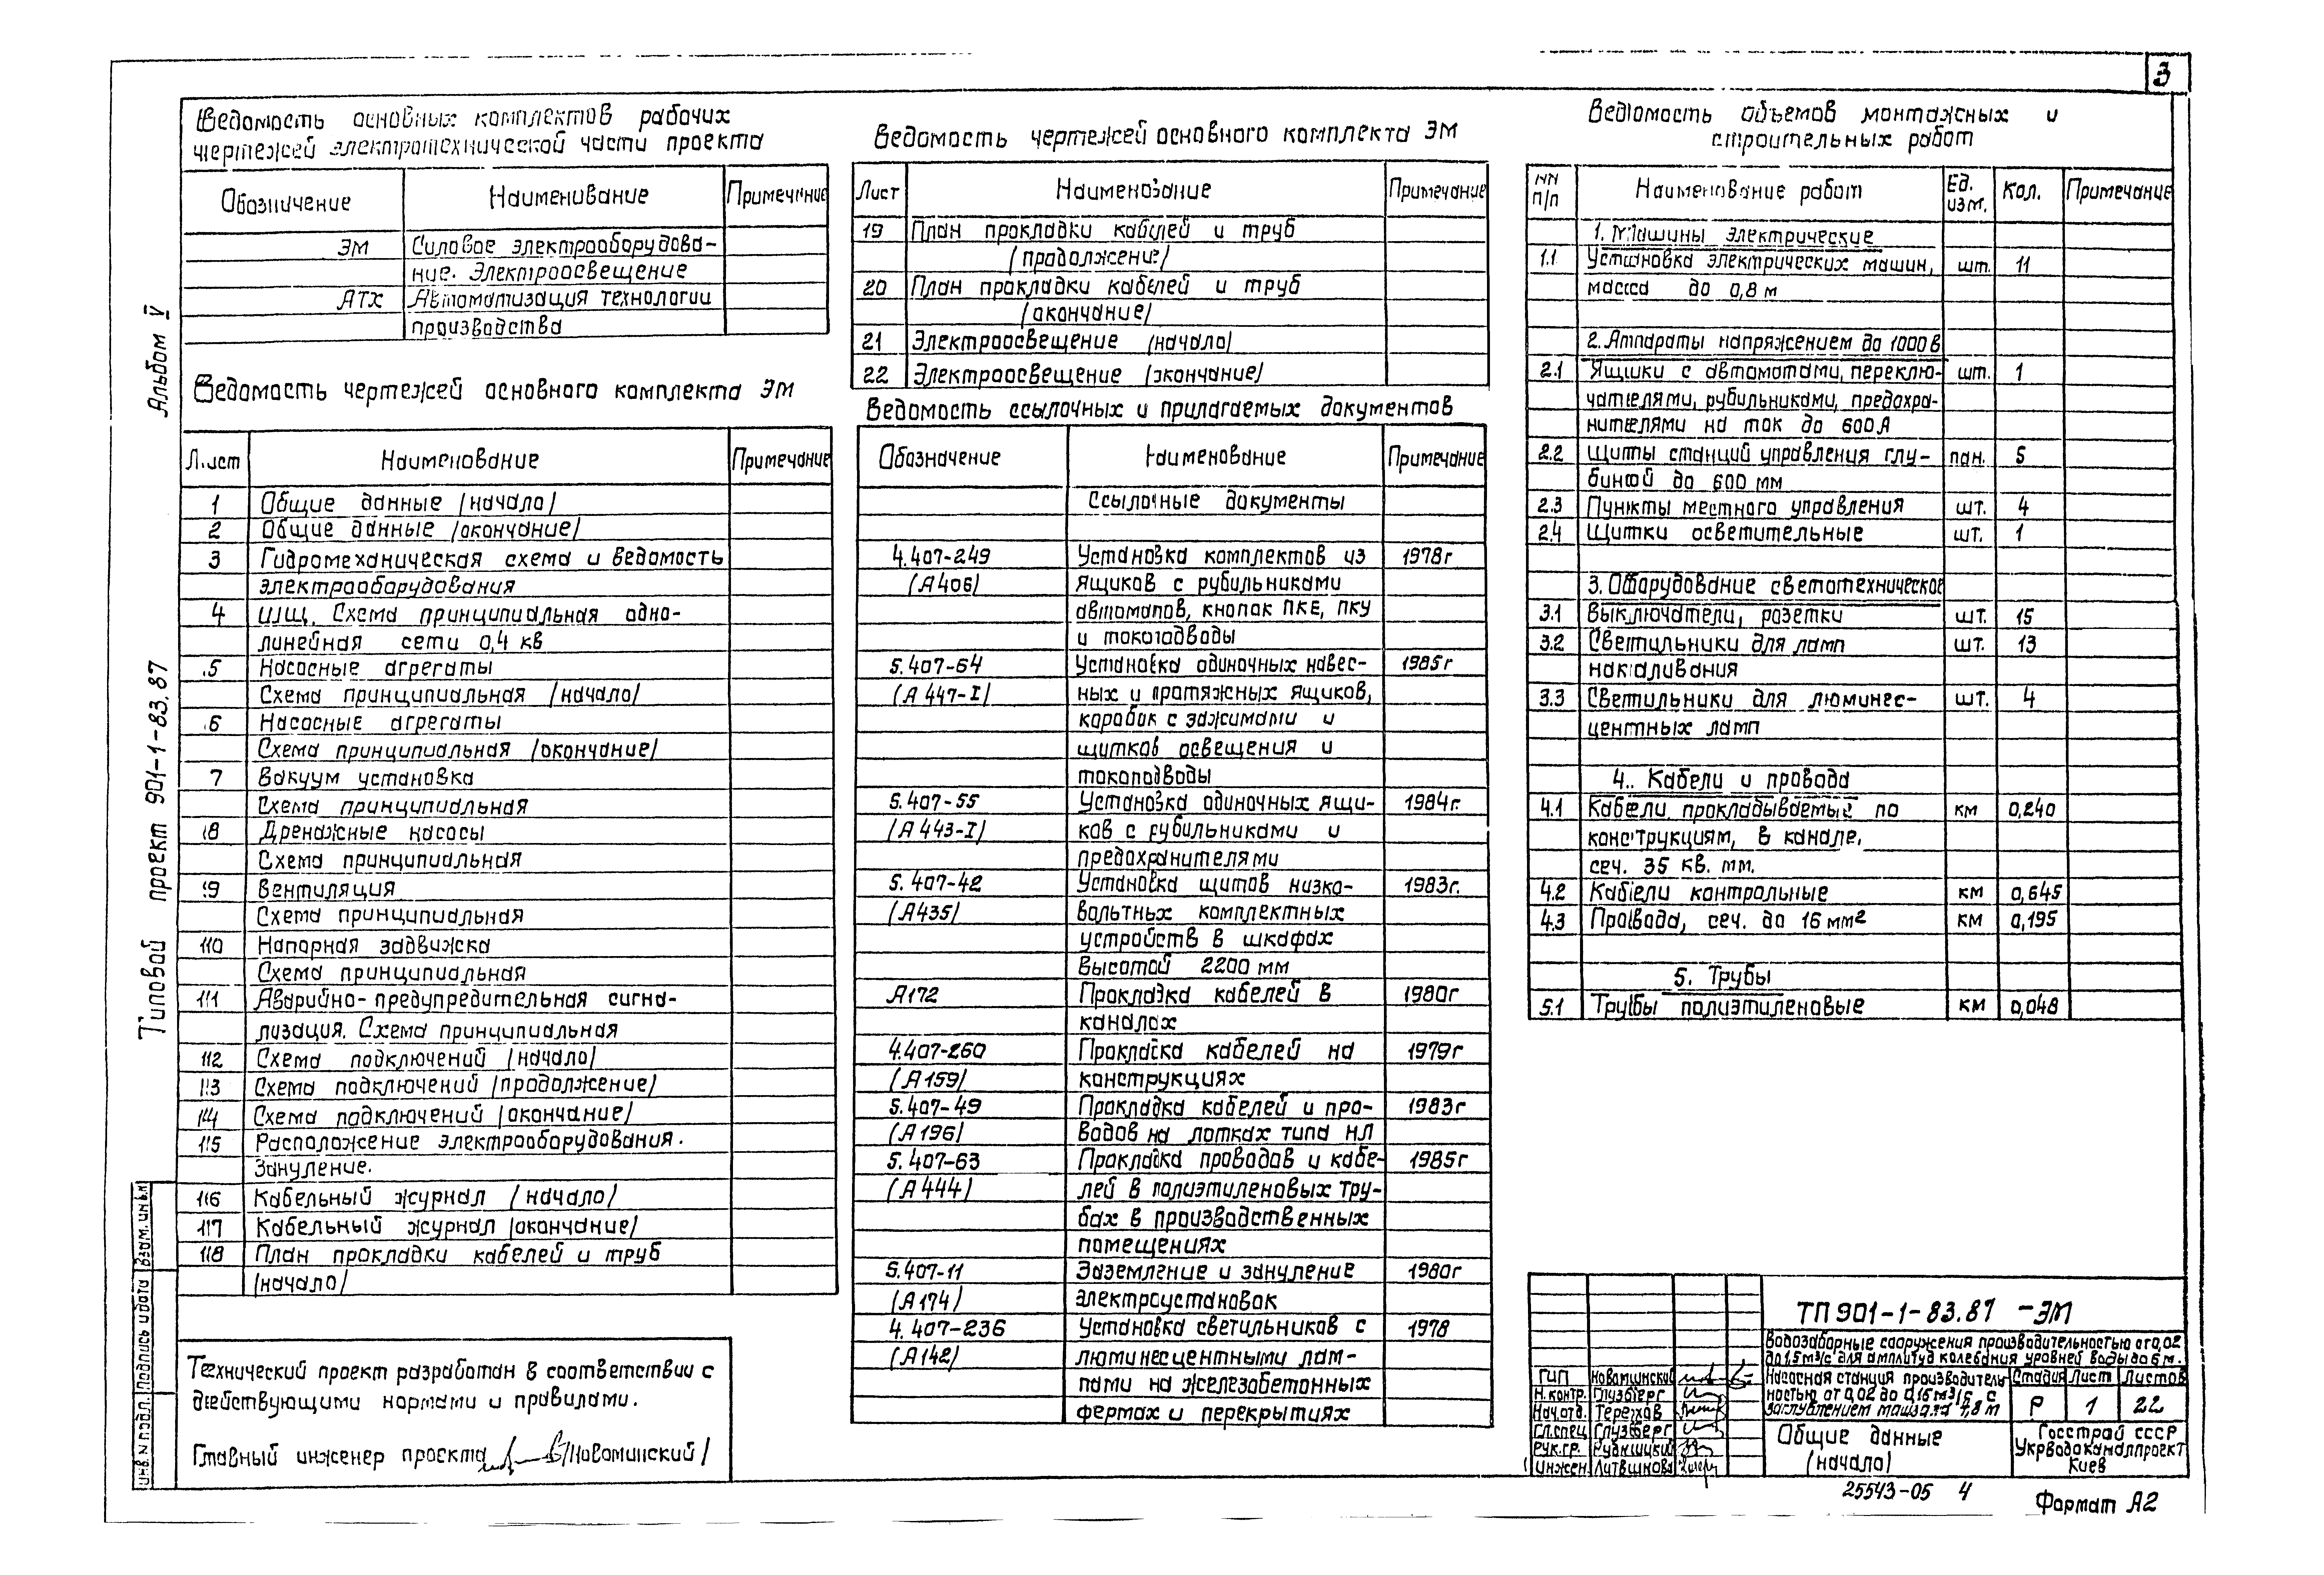 3
Ведомость основных комплектов рабочих
чертежей электротехнической части проекта
Обозначение Наименование Примечание
ЭМ Силовое электрооборудова-
ние. Электроосвещение
АТХ Автоматизация технологии
производства
Ведомость чертежей основного комплекта ЭМ
Лист Наименование Примечание
1 Общие данные /начало/
2 Общие данные /окончание/
3 Гидромеханическая схема и ведомость
электрооборудования
4 ЩЩ. Схема принципиальная одно-
линейная сети 0,4 кв
5 Насосные агрегаты
Схема принципиальная /начало/
6 Насосные агрегаты
Схема принципиальная /окончание/
7 Вакуум установка
Схема принципиальная
8 Дренажные насосы
Схема принципиальная
9 Вентиляция
Схема принципиальная
10 Напорная задвижка
Схема принципиальная
11 Аварийно-предупредительная сигна-
лизация. Схема принципиальная
12 Схема подключений /начало/
13 Схема подключений /продолжение/
14 Схема подключений /окончание/
15 Расположение электрооборудования.
Зануление.
16 Кабельный журнал /начало/
17 Кабельный журнал /окончание/
18 План прокладки кабелей и труб
/начало/
Технический проект разработан в соответствии с
действующими нормами и правилами.
Главный инженер проекта /Новоминский/
Ведомость чертежей основного комплекта ЭМ
Лист Наименование Примечание
19 План прокладки кабелей и труб
/продолжение/
20 План прокладки кабелей и труб
/окончание/
21 Электроосвещение /начало/
22 Электроосвещение /окончание/
Ведомость ссылочных и прилагаемых документов
Обозначение Наименование Примечание
Ссылочные документы
4.407-249 Установка комплектов из 1978г
(А406) ящиков с рубильниками
автоматов, кнопок ПКЕ, ПКУ
и токоподводы
5.407-64 Установка одиночных навес- 1985г
(А 447-I) ных и протяжных ящиков,
коробок с зажимами и
щитков освещения и
токоподводы
5.407-55 Установка одиночных ящи- 1984г.
(А 443-I) ков с рубильниками и
предохранителями
5.407-42 Установка щитов низко- 1983г.
(А435) вольтных комплектных
устройств в шкафах
высотой 2200 мм
А172 Прокладка кабелей в 1980г
каналах
4.407-260 Прокладка кабелей на 1979г
(А159) конструкциях
5.407-49 Прокладка кабелей и про- 1983г
(А196) водов на лотках типа НЛ
5.407-63 Прокладка проводов и кабе- 1985г
(А444) лей в полиэтиленовых тру-
бах в производственных
помещениях
5.407-11 Заземление и зануление 1980г
(А174) электроустановок
4.407-236 Установка светильников с 1978
(А142) люминесцентными лам-
пами на железобетонных
фермах и перекрытиях
Ведомость объемов монтажных и
строительных работ
NN п/п Наименование работ Ед. изм. Кол. Примечание
1. Машины электрические
1.1 Установка электрических машин, шт. 11
масса до 0,8 м
2. Аппараты напряжением до 1000 В
2.1 Ящики с автоматами, переклю- шт. 1
чателями, рубильниками, предохра-
нителями на ток до 600 А
2.2 Щиты станций управления глу- пан. 5
биной до 600 мм
2.3 Пункты местного управления шт. 4
2.4 Щитки осветительные шт. 1
3. Оборудование светотехническое
3.1 Выключатели, розетки шт. 15
3.2 Светильники для ламп шт. 13
накаливания
3.3 Светильники для люминес- шт. 4
центных ламп
4. Кабели и провода
4.1 Кабели прокладываемые по км 0,240
конструкциям, в канале,
сеч. 35 кв. мм.
4.2 Кабели контрольные км 0,645
4.3 Провода, сеч. до 16 мм² км 0,195
5. Трубы
5.1 Трубы полиэтиленовые км 0,048
ТП 901-1-83.87 -ЭМ
Водозаборные сооружения производительностью от 0,02
до 1,5 м³/с для амплитуд колебания уровней воды до 6 м.
ГИП Новоминский
Н.контр. Глузберг
Нач.отд. Терехов
Гл.спец. Глузберг
Рук.гр. Рудницкий
Инжен. Литвинова
Насосная станция производитель
ностью от 0,02 до 0,15 м³/с с
заглублением машзала 4,8 м
Стадия Лист Листов
Р 1 22
Общие данные
/начало/
Госстрой СССР
Укрводоканалпроект
Киев
25543-05 4
Формат А2
Альбом V
Типовой проект 901-1-83.87
Взам. инв.N
Подпись и дата
Инв. N подл.